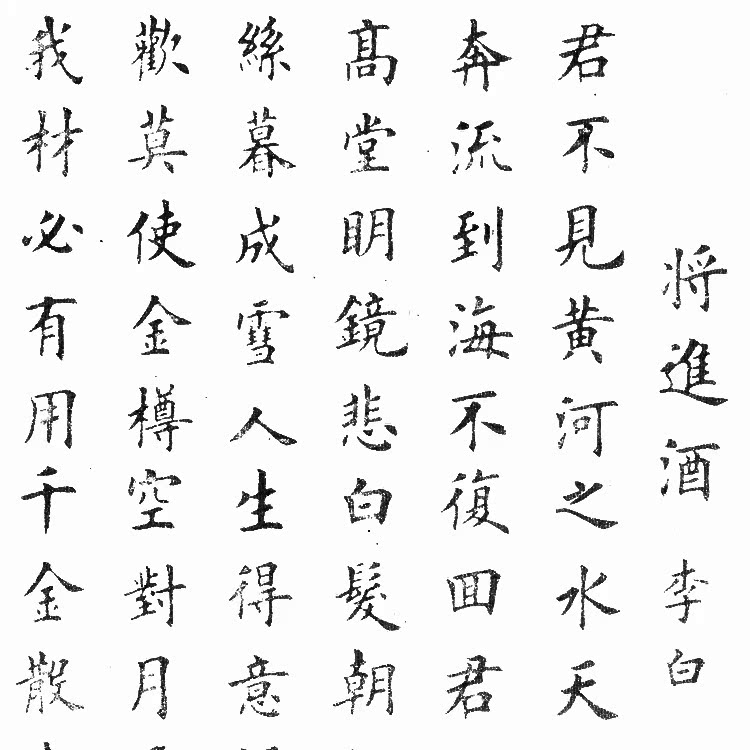 将進酒 李白
君不見黄河之水天
奔流到海不復回君
髙堂明鏡悲白髮朝
絲暮成雪人生得意
歡莫使金樽空對月
我材必有用千金散